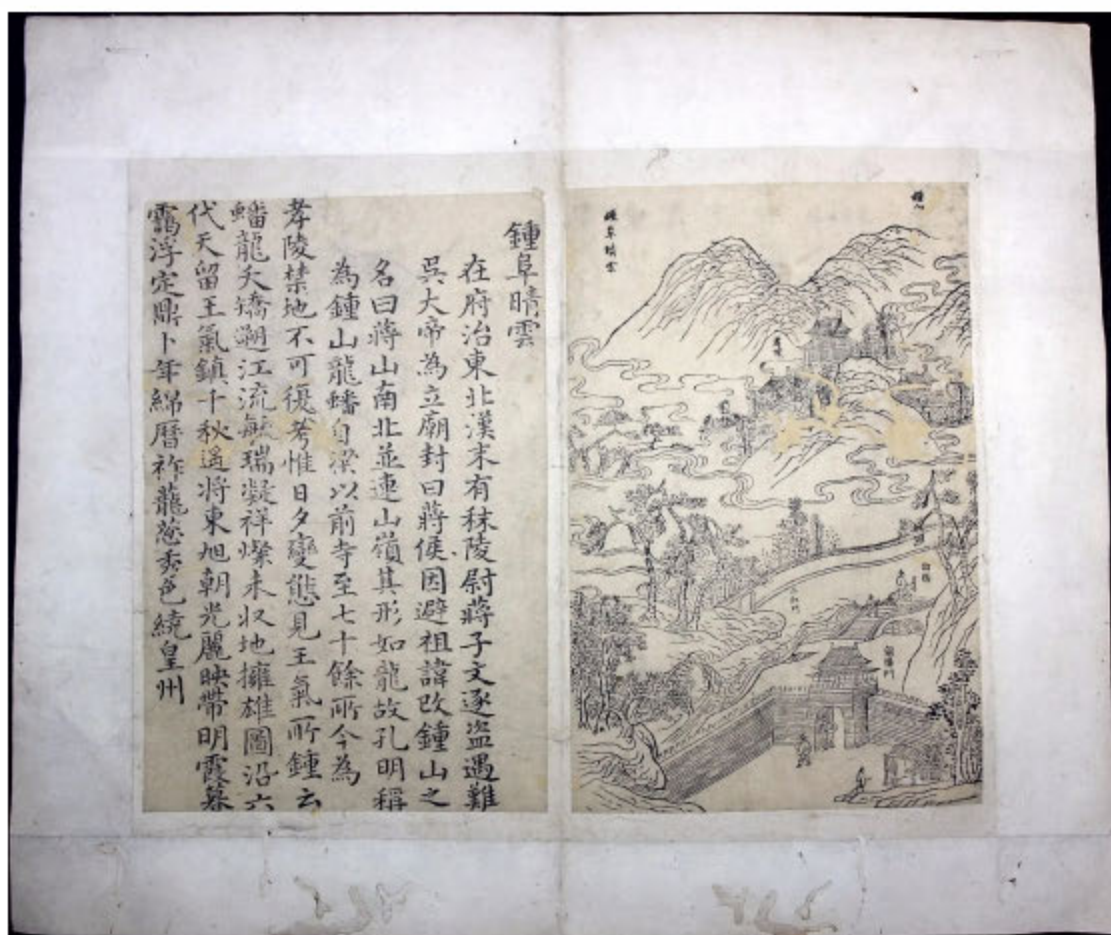 鍾阜晴雲
在府治東北漢末有秣陵尉蔣子文逐盜遇難
吳大帝為立廟封曰蔣侯因避祖諱改鍾山之
名曰蔣山南北並連山嶺其形如龍故孔明稱
為鍾山龍蟠自梁以前寺至七十餘所今為
孝陵禁地不可復考惟日夕變態見王氣所鍾云
蟠龍夭矯遡江流敏瑞凝祥燦未收地擁雄圖沿六
代天留王氣鎮千秋遥将東旭朝光麗映帶明霞暮
靄浮定鼎卜年綿曆祚蘢葱秀色繞皇州
鍾山
鍾阜晴雲
孝陵
朝陽門